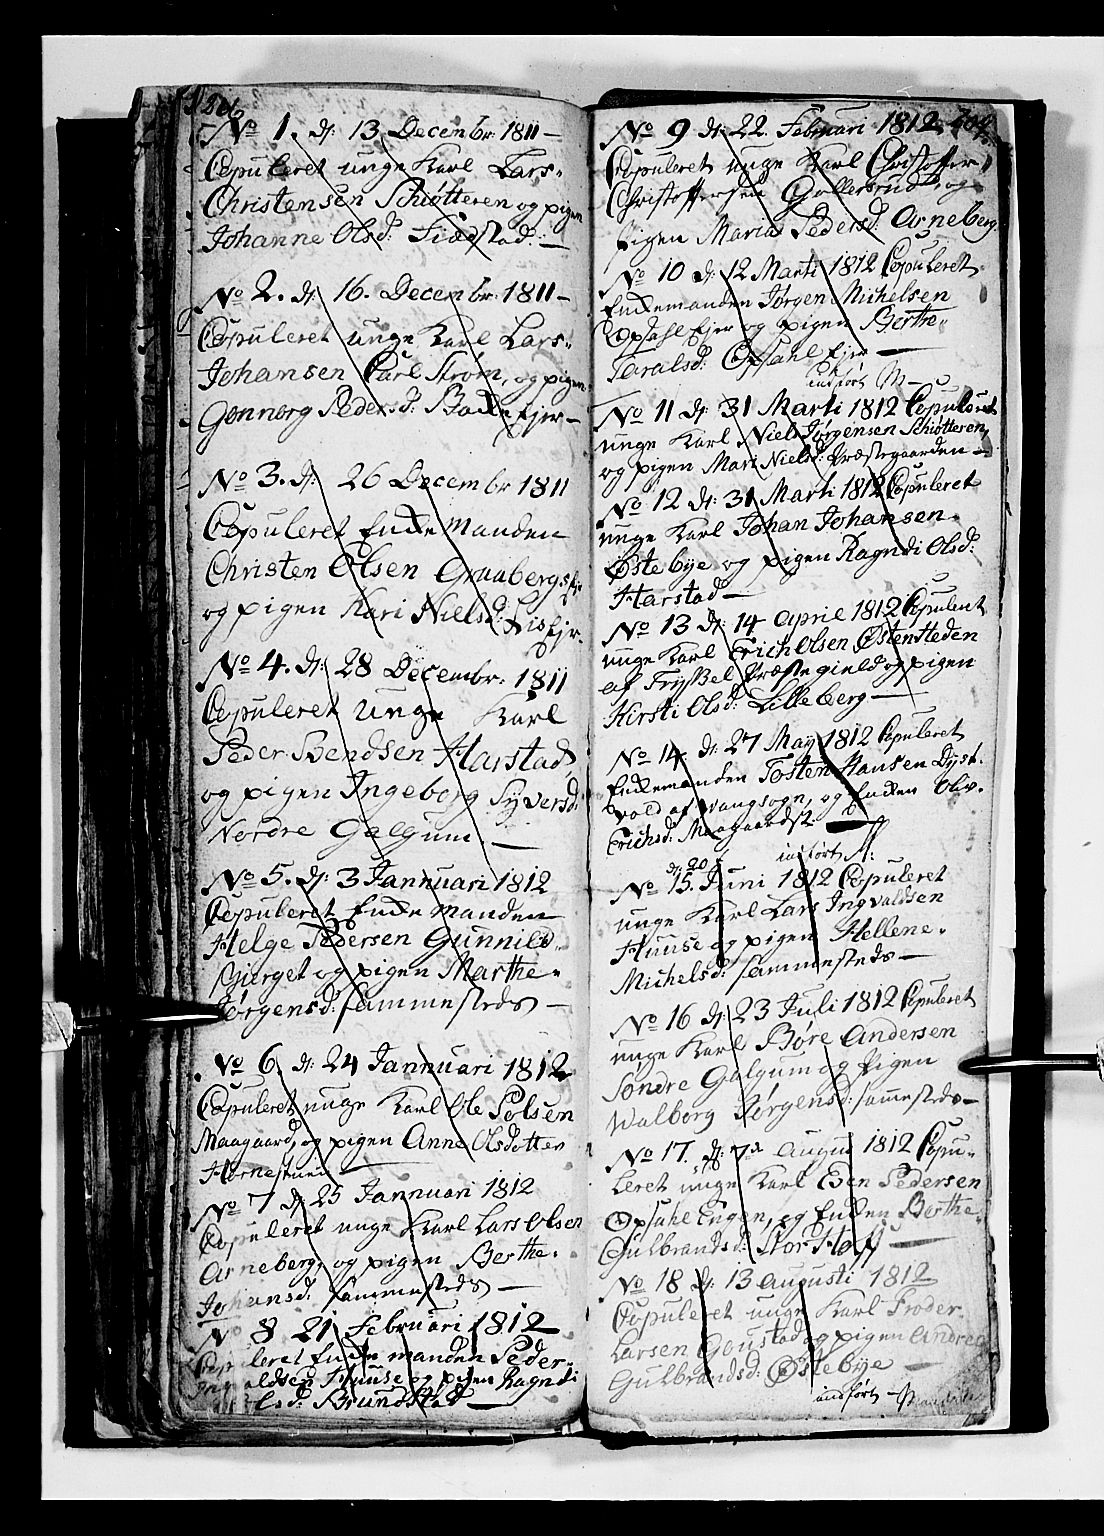 206
No 1. d: 13 Decembr: 1811 –
Copuleret unge Karl Lars
Christensen Schiøtteren og pigen
Johanne Olsd: Fiædstad: –
No 2. d: 16. Decembr: 1811 –
Copuleret unge Karl Lars
Johansen Carl Strøm, og pigen
Gonnorg Pedersd: Ejer –
No 3. d: 26 Decembr 1811
Copuleret Enke Manden
Christen Olsen Graabergs
og pigen Kari Nielsd:
No 4. d: 28 Decembr: 1811
Copuleret unge Karl
Peder Bendsen Harstad
og pigen Ingeborg Syversd:
Nordre Galgum. –
No 5. d: 3 Jannuari 1812
Copuleret Enke manden
Helge Pedersen Gunnild
Bierget og pigen Marthe
Jørgensd: sammesteds –
No 6 d: 24 Jannuari 1812
Copuleret unge Karl Ole Polsen
Maagaard, og pigen Anne Olsdotter
Hornestuen
No 7 d: 25 Jannuari 1812
Copuleret unge Karl Lars Olsen
Arneberg, og pigen Berthe
Johansd: sammesteds –
No 8 21 Februari 1812
Copuleret Enke manden Peder
Huuse og pigen Ragndi
Brundstad –
No 9 d: 22. Februari 1812
Copuleret unge Karl Christoffer
Christoffersen Gollersrud og
pigen Maria Pedersd: Arneberg
No 10 d: 12 Marti 1812 Copuleret
Enkemanden Jørgen Michelsen
Opsahl Ejer og pigen Berthe
Taralsd: Opsahl Ejer –
indført
No 11 d: 31 Marti 1812 Copuleret
unge Karl Niels Jørgensen Schiøtteren,
og pigen Mari Nielsd: Præstegaarden –
No 12 d: 31 Marti 1812 Copuleret
unge Karl Johan Johansen
Østebye og pigen Ragndi Olsd:
Harstad –
No 13 d: 14 April 1812 Copuleret
unge Karl Erich Olsen Østen Heden
af Tryssel Præstegield og pigen
Kirsti Olsd: Lilleberg –
No 14 d: 27 May 1812 Copuleret
Enkemanden Tosten Hansen Dyst
vold af Vangsogn, og Enken Oliv
Erichsd: –
indført
d: 20
No 15. Juni 1812 Copuleret
unge Karl Lars Ingvaldsen
Huuse og pigen Hellene
Michelsd: sammesteds –
No 16 d: 23 Juli 1812 Copuleret
unge Karl Børe Andersen
Søndre Galgum og pigen
Walborg Jørgensd: sammesteds –
No 17. d: 7de August 1812 Copu-
leret unge Karl Even Pedersen
Opsahl Engen, og Enken Berthe
Gulbrandsd: Stor Hoff –
No 18 d: 13 Augusti 1812
Copuleret unge Karl Froder
Larsen Gonstad og pigen Andrea
Gulbrandsd: Østebye –
indført